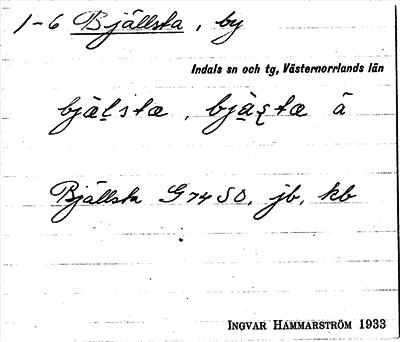 1-6 Bjällsta, by
Indals sn och tg, Västernorrlands län
Bjällsta G 74 SO, jb, kb
INGVAR HAMMARSTRÖM 1933